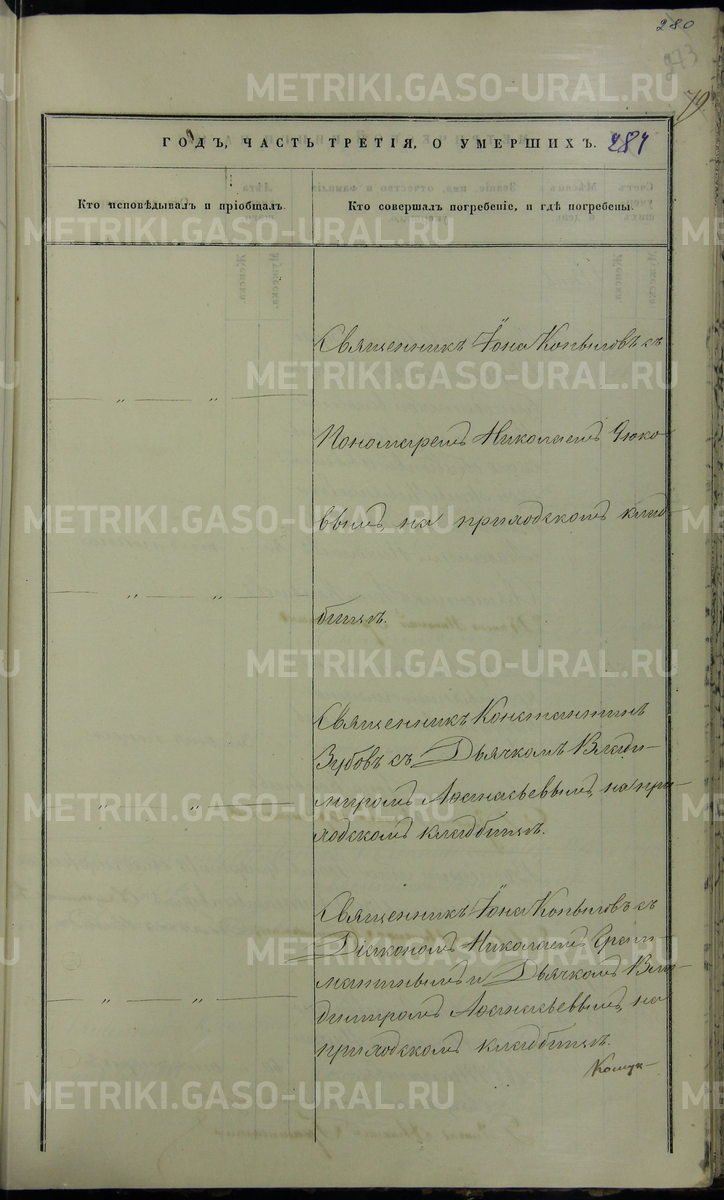 280
273
79
METRIKI.GASO-URAL.RU
ГОДЪ, ЧАСТЬ ТРЕТІЯ, О УМЕРШИХЪ.
281
Кто исповѣдывалъ и пріобщалъ.
Кто совершалъ погребеніе, и гдѣ погребены.
Священникъ Іона Копыловъ съ
METRIKI.GASO-URAL.RU
„ „
Пономаремъ Николаемъ Дюко-
METRIKI.GASO-URAL.RU
вымъ, на приходскомъ клад-
„ „
бищѣ.
METRIKI.GASO-URAL.RU
Священникъ Константинъ
Зубовъ съ Дьячкомъ Влади-
миромъ Аѳанасьевымъ, на при-
METRIKI.GASO-URAL.RU
„ „
ходскомъ кладбищѣ.
Священникъ Іона Копыловъ съ
Діакономъ Николаемъ
METRIKI.GASO-URAL.RU
и Дьячкомъ Вла-
„ „
диміромъ Аѳанасьевымъ, на
приходскомъ кладбищѣ.
METRIKI.GASO-URAL.RU